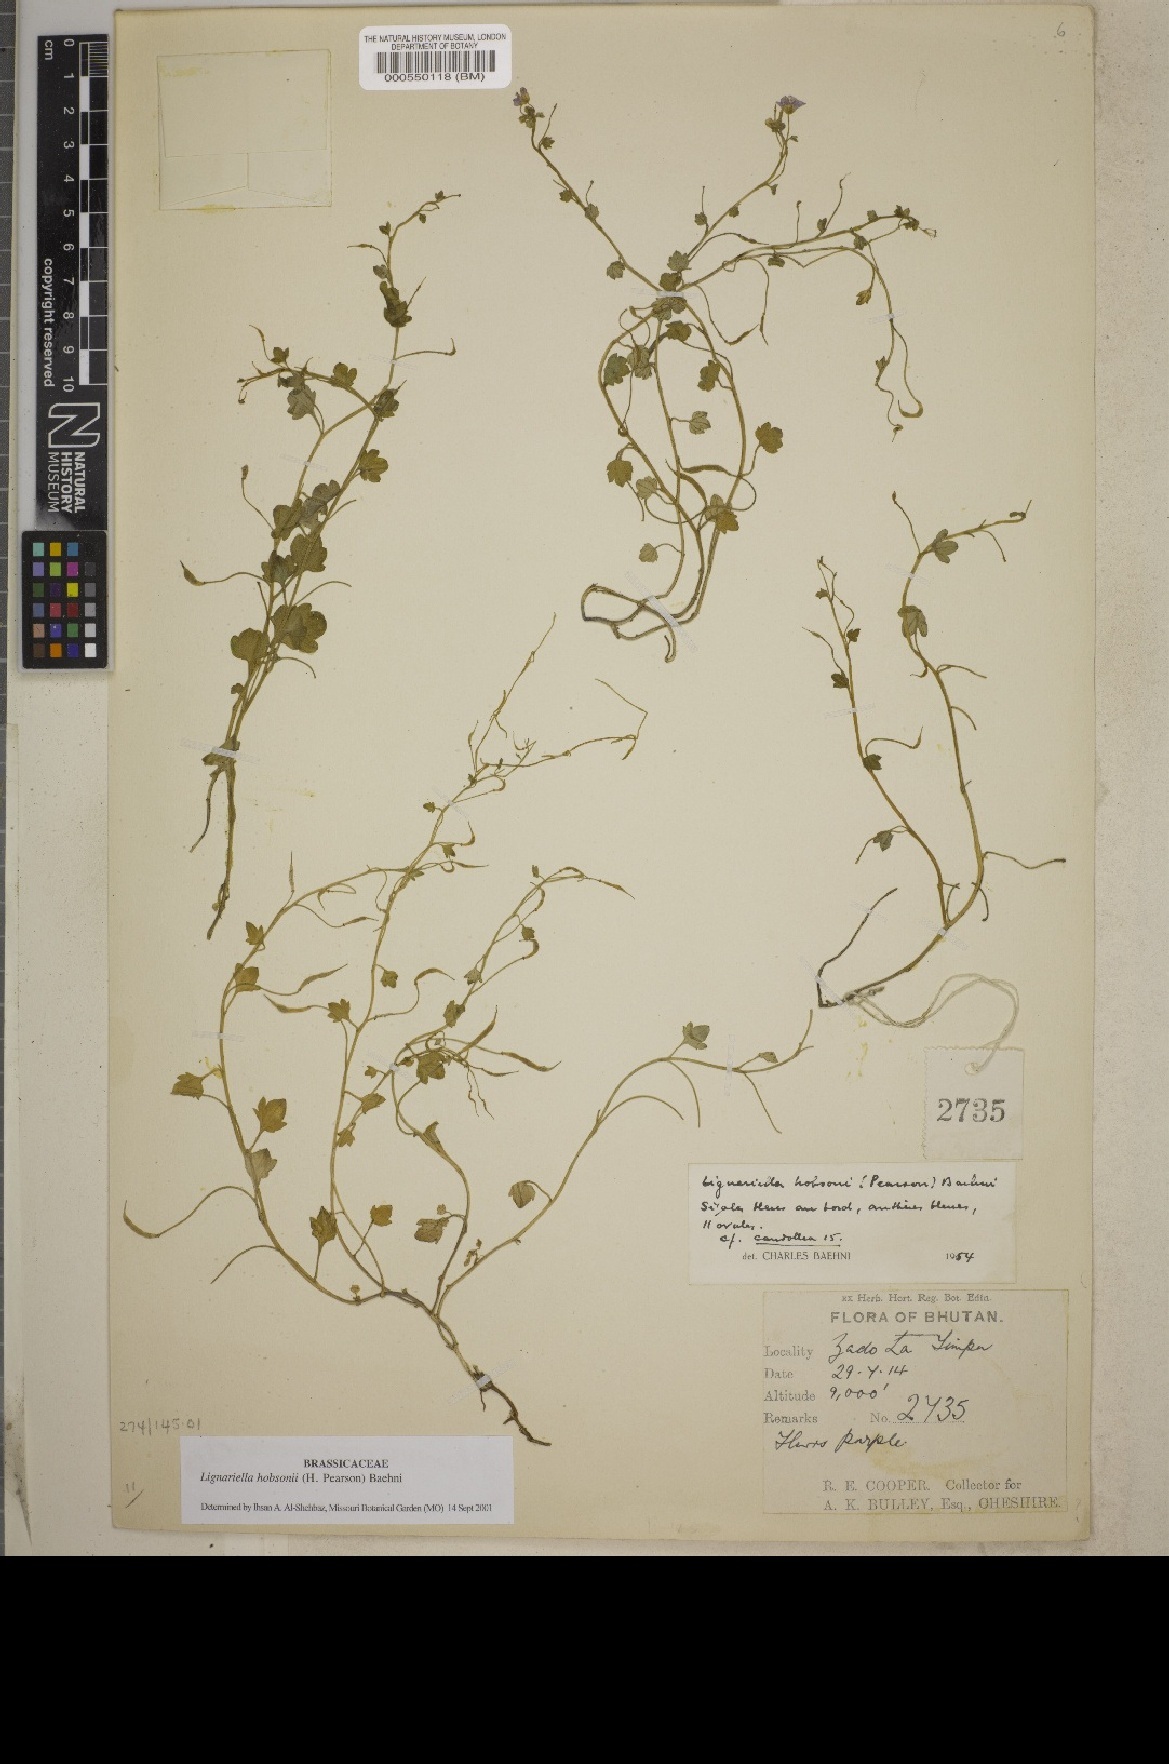 6
THE NATURAL HISTORY MUSEUM, LONDON
DEPARTMENT OF BOTANY
000550118 (BM)
cm
0
1
2
3
4
5
6
7
8
9
10
copyright reserved
NATURAL
HISTORY
MUSEUM
2735
Lignariella hobsonii (Pearson) Baehni
bleues,
11 ovules.
cf. Candollea 15.
det. CHARLES BAEHNI 1954
EX Herb. Hort. Reg. Bot. Edin.
FLORA OF BHUTAN.
Locality Zado La
Date 29-7-14
Altitude 9,000'
Remarks No. 2735
purple
R. E. COOPER. Collector for
A. K. BULLEY, Esq., CHESHIRE.
274/145.01
11/
BRASSICACEAE
Lignariella hobsonii (H. Pearson) Baehni
Determined by Ihsan A. Al-Shehbaz, Missouri Botanical Garden (MO) 14 Sept 2001